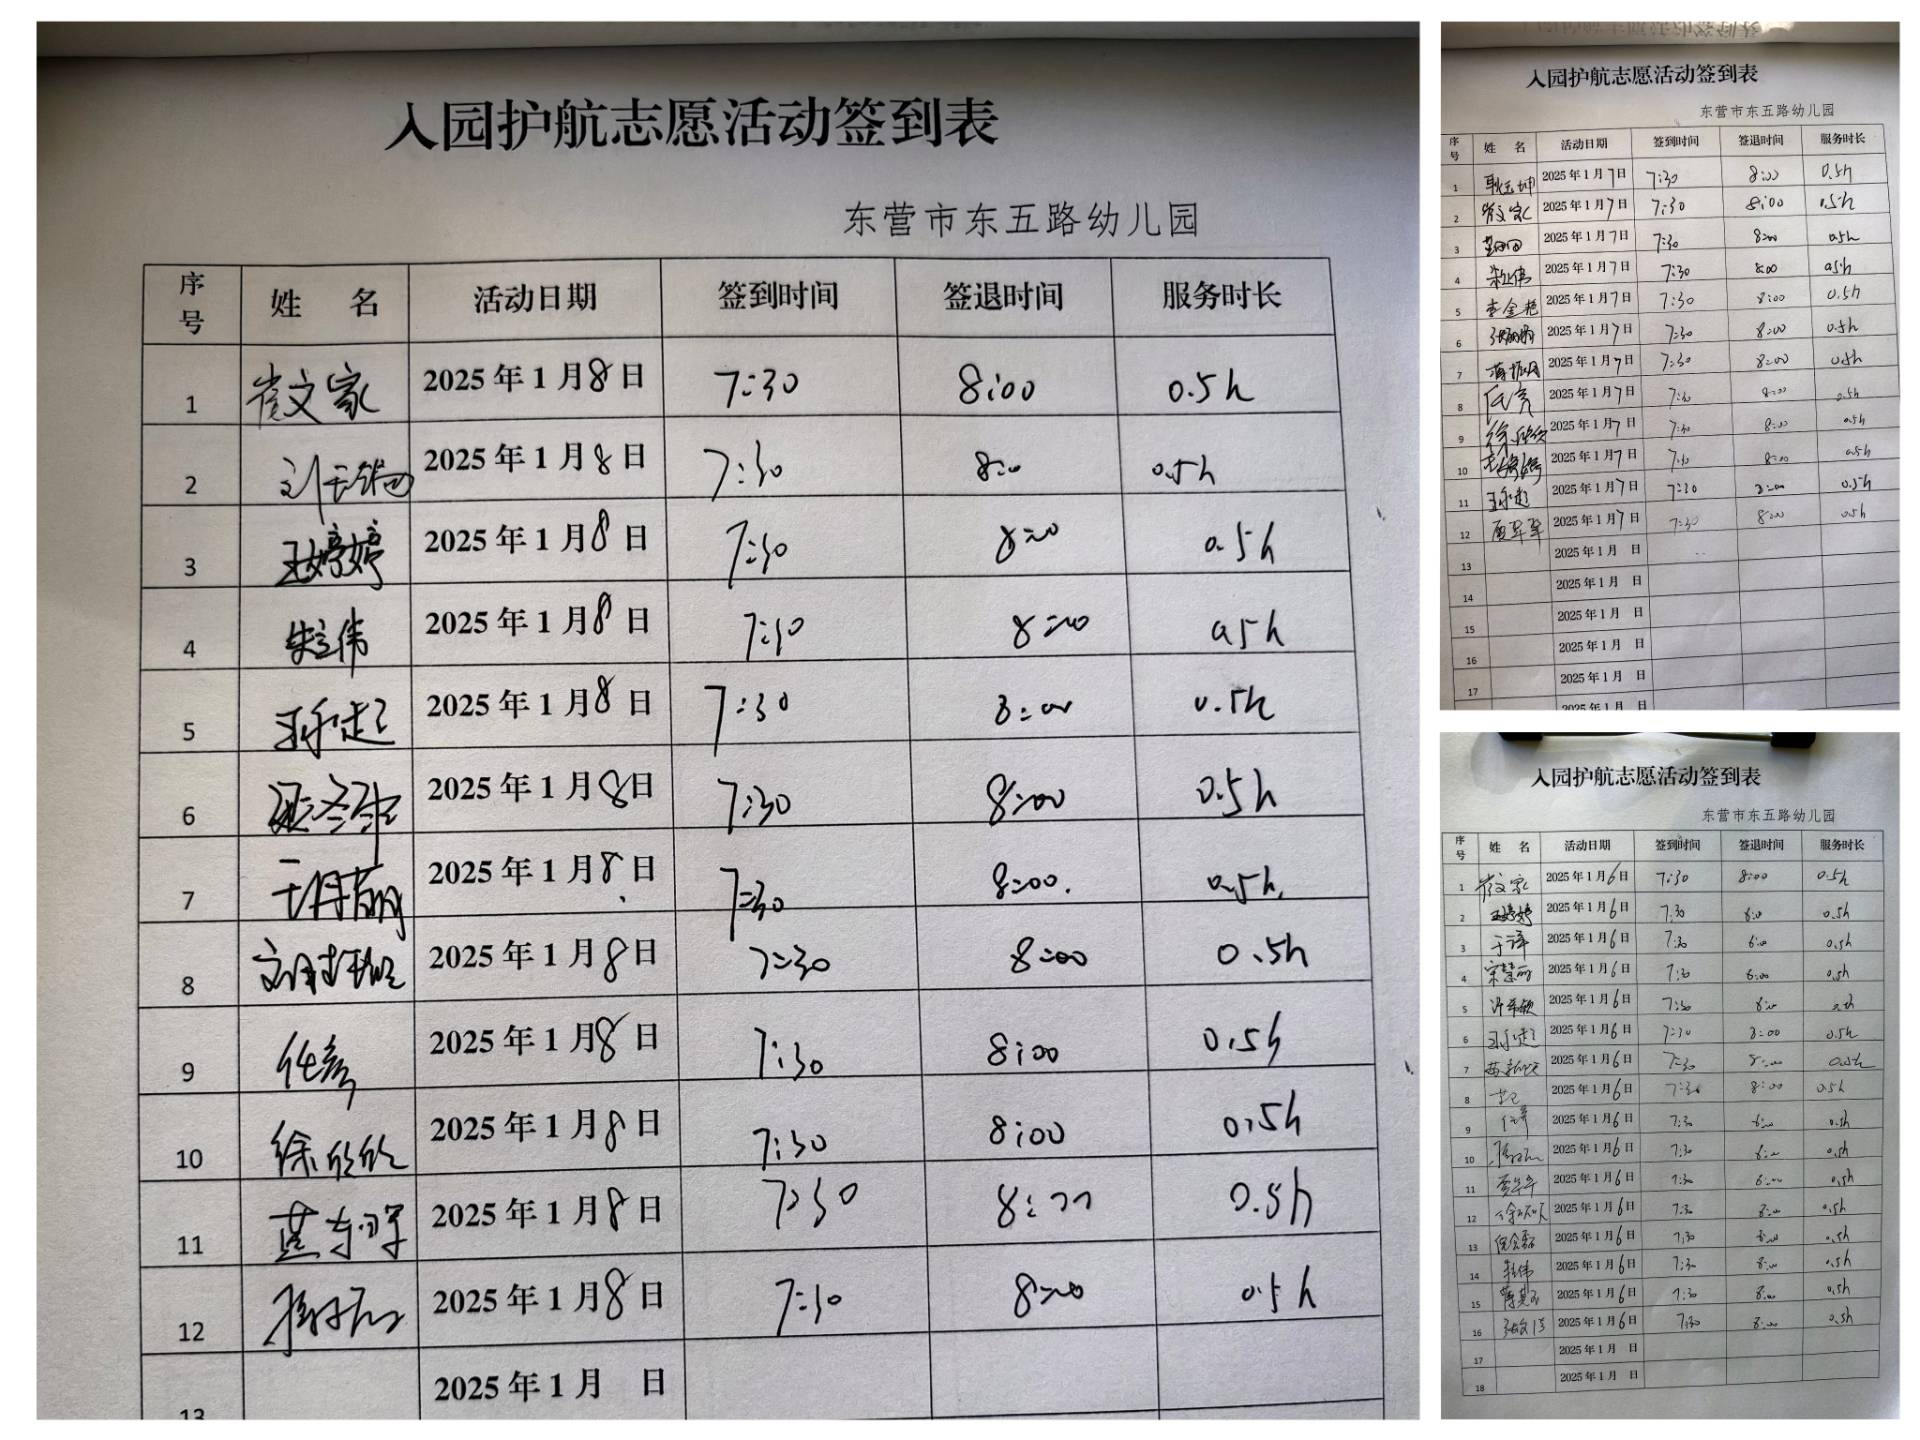 入园护航志愿活动签到表
东营市东五路幼儿园
序号 姓 名 活动日期 签到时间 签退时间 服务时长
1 崔文家 2025年1月8日 7:30 8:00 0.5h
2 2025年1月8日 7:30 8:00 0.5h
3 王婷婷 2025年1月8日 7:30 8:00 0.5h
4 朱立伟 2025年1月8日 7:30 8:00 0.5h
5 2025年1月8日 7:30 8:00 0.5h
6 2025年1月8日 7:30 8:00 0.5h
7 于丹丽 2025年1月8日 7:30 8:00 0.5h
8 2025年1月8日 7:30 8:00 0.5h
9 任亮 2025年1月8日 7:30 8:00 0.5h
10 徐欣欣 2025年1月8日 7:30 8:00 0.5h
11 2025年1月8日 7:30 8:00 0.5h
12 2025年1月8日 7:30 8:00 0.5h
13 2025年1月 日
入园护航志愿活动签到表
东营市东五路幼儿园
序号 姓 名 活动日期 签到时间 签退时间 服务时长
1 耿玉坤 2025年1月7日 7:30 8:00 0.5h
2 崔文家 2025年1月7日 7:30 8:00 0.5h
3 2025年1月7日 7:30 8:00 0.5h
4 朱立伟 2025年1月7日 7:30 8:00 0.5h
5 李金艳 2025年1月7日 7:30 8:00 0.5h
6 2025年1月7日 7:30 8:00 0.5h
7 2025年1月7日 7:30 8:00 0.5h
8 任亮 2025年1月7日 7:30 8:00 0.5h
9 徐欣欣 2025年1月7日 7:30 8:00 0.5h
10 2025年1月7日 7:30 8:00 0.5h
11 2025年1月7日 7:30 8:00 0.5h
12 2025年1月7日 7:30 8:00 0.5h
13 2025年1月 日
14 2025年1月 日
15 2025年1月 日
16 2025年1月 日
17 2025年1月 日
2025年1月 日
入园护航志愿活动签到表
东营市东五路幼儿园
序号 姓 名 活动日期 签到时间 签退时间 服务时长
1 崔文家 2025年1月6日 7:30 8:00 0.5h
2 王婷婷 2025年1月6日 7:30 8:00 0.5h
3 于译 2025年1月6日 7:30 8:00 0.5h
4 宋慧丽 2025年1月6日 7:30 8:00 0.5h
5 2025年1月6日 7:30 8:00 0.5h
6 2025年1月6日 7:30 8:00 0.5h
7 2025年1月6日 7:30 8:00 0.5h
8 2025年1月6日 7:30 8:00 0.5h
9 2025年1月6日 7:30 8:00 0.5h
10 2025年1月6日 7:30 8:00 0.5h
11 2025年1月6日 7:30 8:00 0.5h
12 2025年1月6日 7:30 8:00 0.5h
13 2025年1月6日 7:30 8:00 0.5h
14 2025年1月6日 7:30 8:00 0.5h
15 2025年1月6日 7:30 8:00 0.5h
16 2025年1月6日 7:30 8:00 0.5h
17 2025年1月 日
18 2025年1月 日